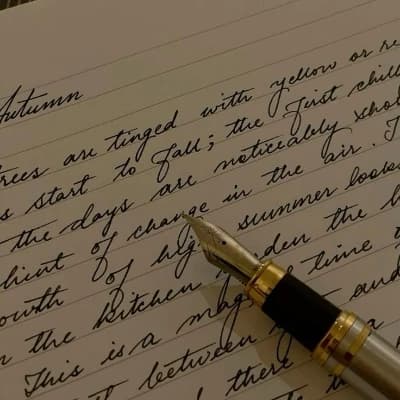 Autumn
trees are tinged with yellow or re
s start to fall; the first chill
the days are noticeably shor
hint of change in the air. T
owth of high summer looks
n the kitchen rden the l
This is a mag time
t between and
there a